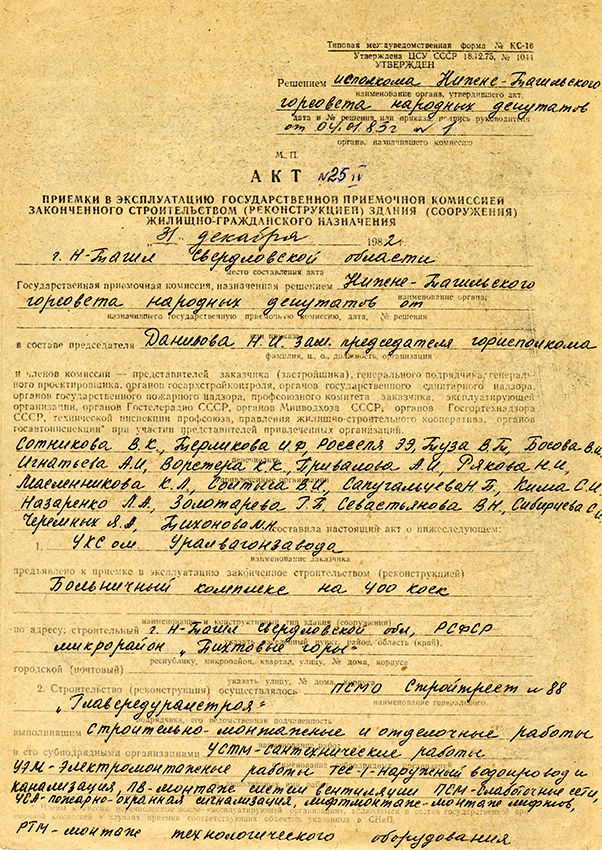 Типовая междуведомственная форма № КС-16
Утверждена ЦСУ СССР 18.12.75, № 1044
УТВЕРЖДЕН
Решением исполкома Нижне-Тагильского
наименование органа, утвердившего акт,
горсовета народных депутатов
дата и № решения, или приказа подпись руководителя
от 04.01.83г № 1
органа, назначившего комиссию
М. П.
АКТ №25 IV
ПРИЕМКИ В ЭКСПЛУАТАЦИЮ ГОСУДАРСТВЕННОЙ ПРИЕМОЧНОЙ КОМИССИЕЙ
ЗАКОНЧЕННОГО СТРОИТЕЛЬСТВОМ (РЕКОНСТРУКЦИЕЙ) ЗДАНИЯ (СООРУЖЕНИЯ)
ЖИЛИЩНО-ГРАЖДАНСКОГО НАЗНАЧЕНИЯ
„31„ декабря 1982 г.
г. Н-Тагил Свердловской области
место составления акта
Государственная приемочная комиссия, назначенная решением Нижне-Тагильского
наименование органа,
горсовета народных депутатов от
назначившего государственную приемочную комиссию, дата, № решения
в составе председателя Данилова Н.И. зам. председателя горисполкома
фамилия, и., о., должность, организация
и членов комиссии — представителей заказчика (застройщика), генерального подрядчика, генераль-
ного проектировщика, органов госархстройконтроля, органов государственного санитарного надзора,
органов государственного пожарного надзора, профсоюзного комитета заказчика, эксплуатирующей
организации, органов Гостелерадио СССР, органов Минводхоза СССР, органов Госгортехнадзора
СССР, технической инспекции профсоюза, правления жилищно-строительного кооператива, органов
госавтоинспекции при участии представителей привлеченных организаций:
Сотникова В.К., Терликова И.Ф, Росселя ЭЭ, Туза В.П, Босова В.И
Игнатьева А.И, Ворстера К.К, Привалова А.И, Рякова Н.И,
Масленникова К.Л, В.Г, Сапугальцева Н.П, Кима С.И,
Назаренко Л.А, Золотарева Г.П, Севастьянова В.Н, Сибирцева С.И
Черемных Я.А, Тихонова М.Н составила настоящий акт о нижеследующем:
1. УКС ом Уралвагонзавода
наименование заказчика
предъявлено к приемке в эксплуатацию законченное строительством (реконструкцией)
Больничный комплекс на 400 коек
наименование и конструктивный тип здания (сооружения)
по адресу: строительный г. Н-Тагил Свердловской обл, РСФСР
микрорайон „Пихтовые горы"
республику, микрорайон, квартал, улицу, № дома, корпуса
городской (почтовый)
указать улицу, № дома, корпуса
2. Строительство (реконструкция) осуществлялось ПСМО Стройтрест № 88
наименование генерального
„Главсредуралстроя"
подрядчика, его ведомственная подчиненность
выполнившим строительно-монтажные и отделочные работы
и его субподрядными организациями УСТМ-сантехнические работы
УЭМ-Электромонтажные работы ТСС-1-наружный водопровод и
канализация, ПВ-монтаж систем вентиляции ПСМ-слаботочные сети,
УСА-пожарно-охранная сигнализация, лифтмонтаж-монтаж лифтов,
РТМ-монтаж технологического оборудования